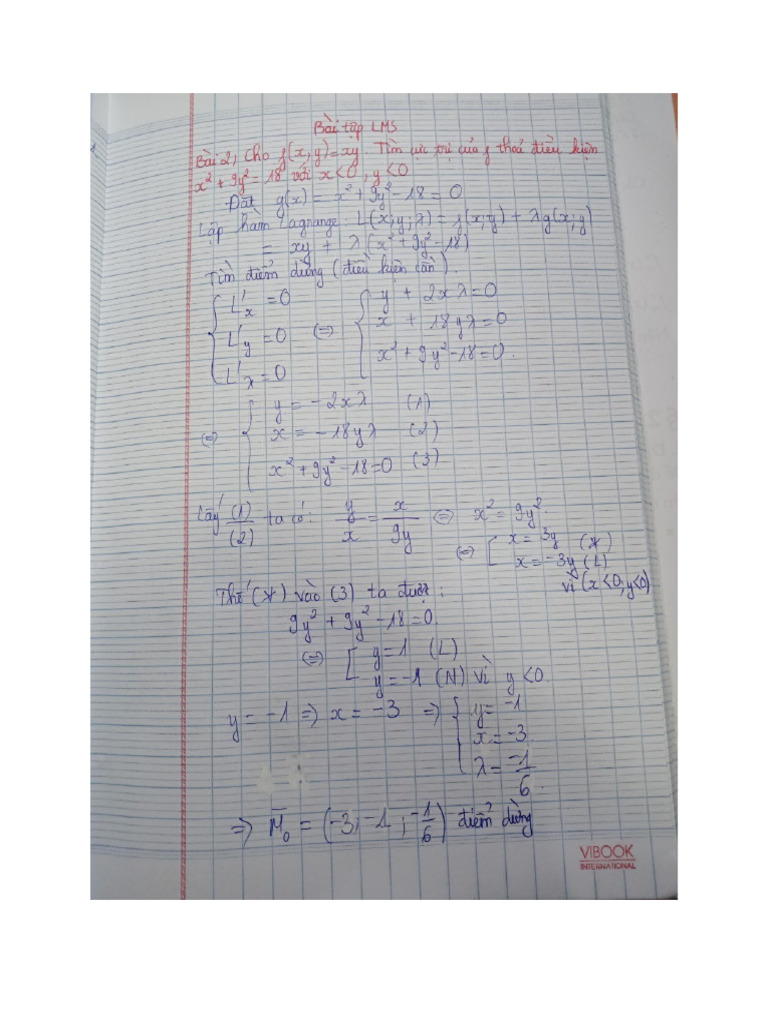 Bài tập LMS
Bài 2, Cho f(x,y)=xy Tìm cực trị của f thoả điều kiện
x² + 9y² = 18 với x<0, y<0
Đặt g(x) = x² + 9y² - 18 = 0
Lập hàm Lagrange: L(x;y;λ) = f(x;y) + λg(x;y)
= xy + λ(x² + 9y² - 18)
Tìm điểm dừng (điều kiện cần).
{ L'x = 0 y + 2xλ = 0
{ L'y = 0 (=) { x + 18yλ = 0
{ L'λ = 0 x² + 9y² - 18 = 0.
(=) { y = -2xλ (1)
x = -18yλ (2)
x² + 9y² - 18 = 0 (3)
Lấy (1)/(2) ta có: y/x = x/9y (=) x² = 9y².
(=) [ x = 3y (*)
x = -3y (L)
vì (x<0, y<0)
Thế (*) vào (3) ta được:
9y² + 9y² - 18 = 0.
(=) [ y = 1 (L)
y = -1 (N) vì y<0.
y = -1 => x = -3 => { y = -1
x = -3.
λ = -1/6.
=> M₀ = (-3, -1, -1/6) điểm dừng
VIBOOK
INTERNATIONAL